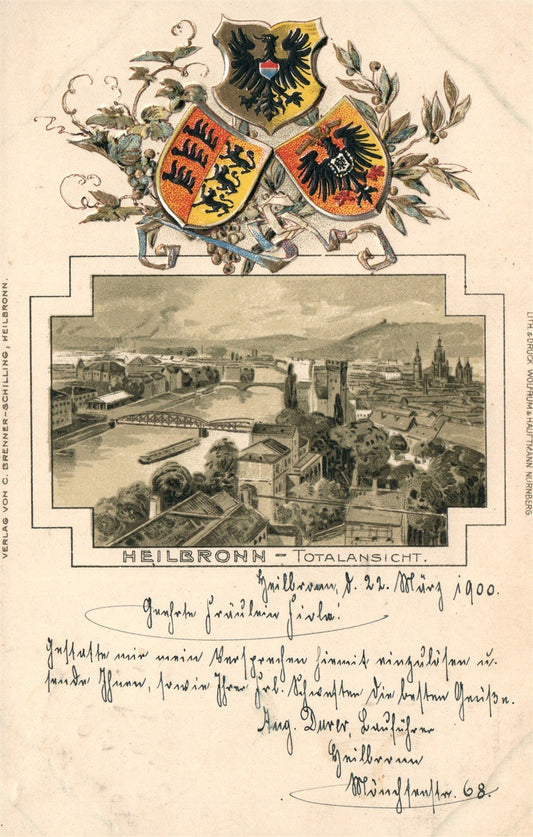 VERLAG VON C. BRENNER-SCHILLING, HEILBRONN.
LITH. & DRUCK WOLFRUM & HAUPTMANN NÜRNBERG
HEILBRONN - TOTALANSICHT.
Heilbronn, d. 22. März 1900.
Geehrte Fräulein Fiola!
Gestatte mir mein Versprechen hiemit einzulösen u.
sende Ihnen, sowie Ihrer Frl. Schwester die besten Grüße.
Aug. Durer, Bauführer
Heilbronn
Mönchseestr. 68.